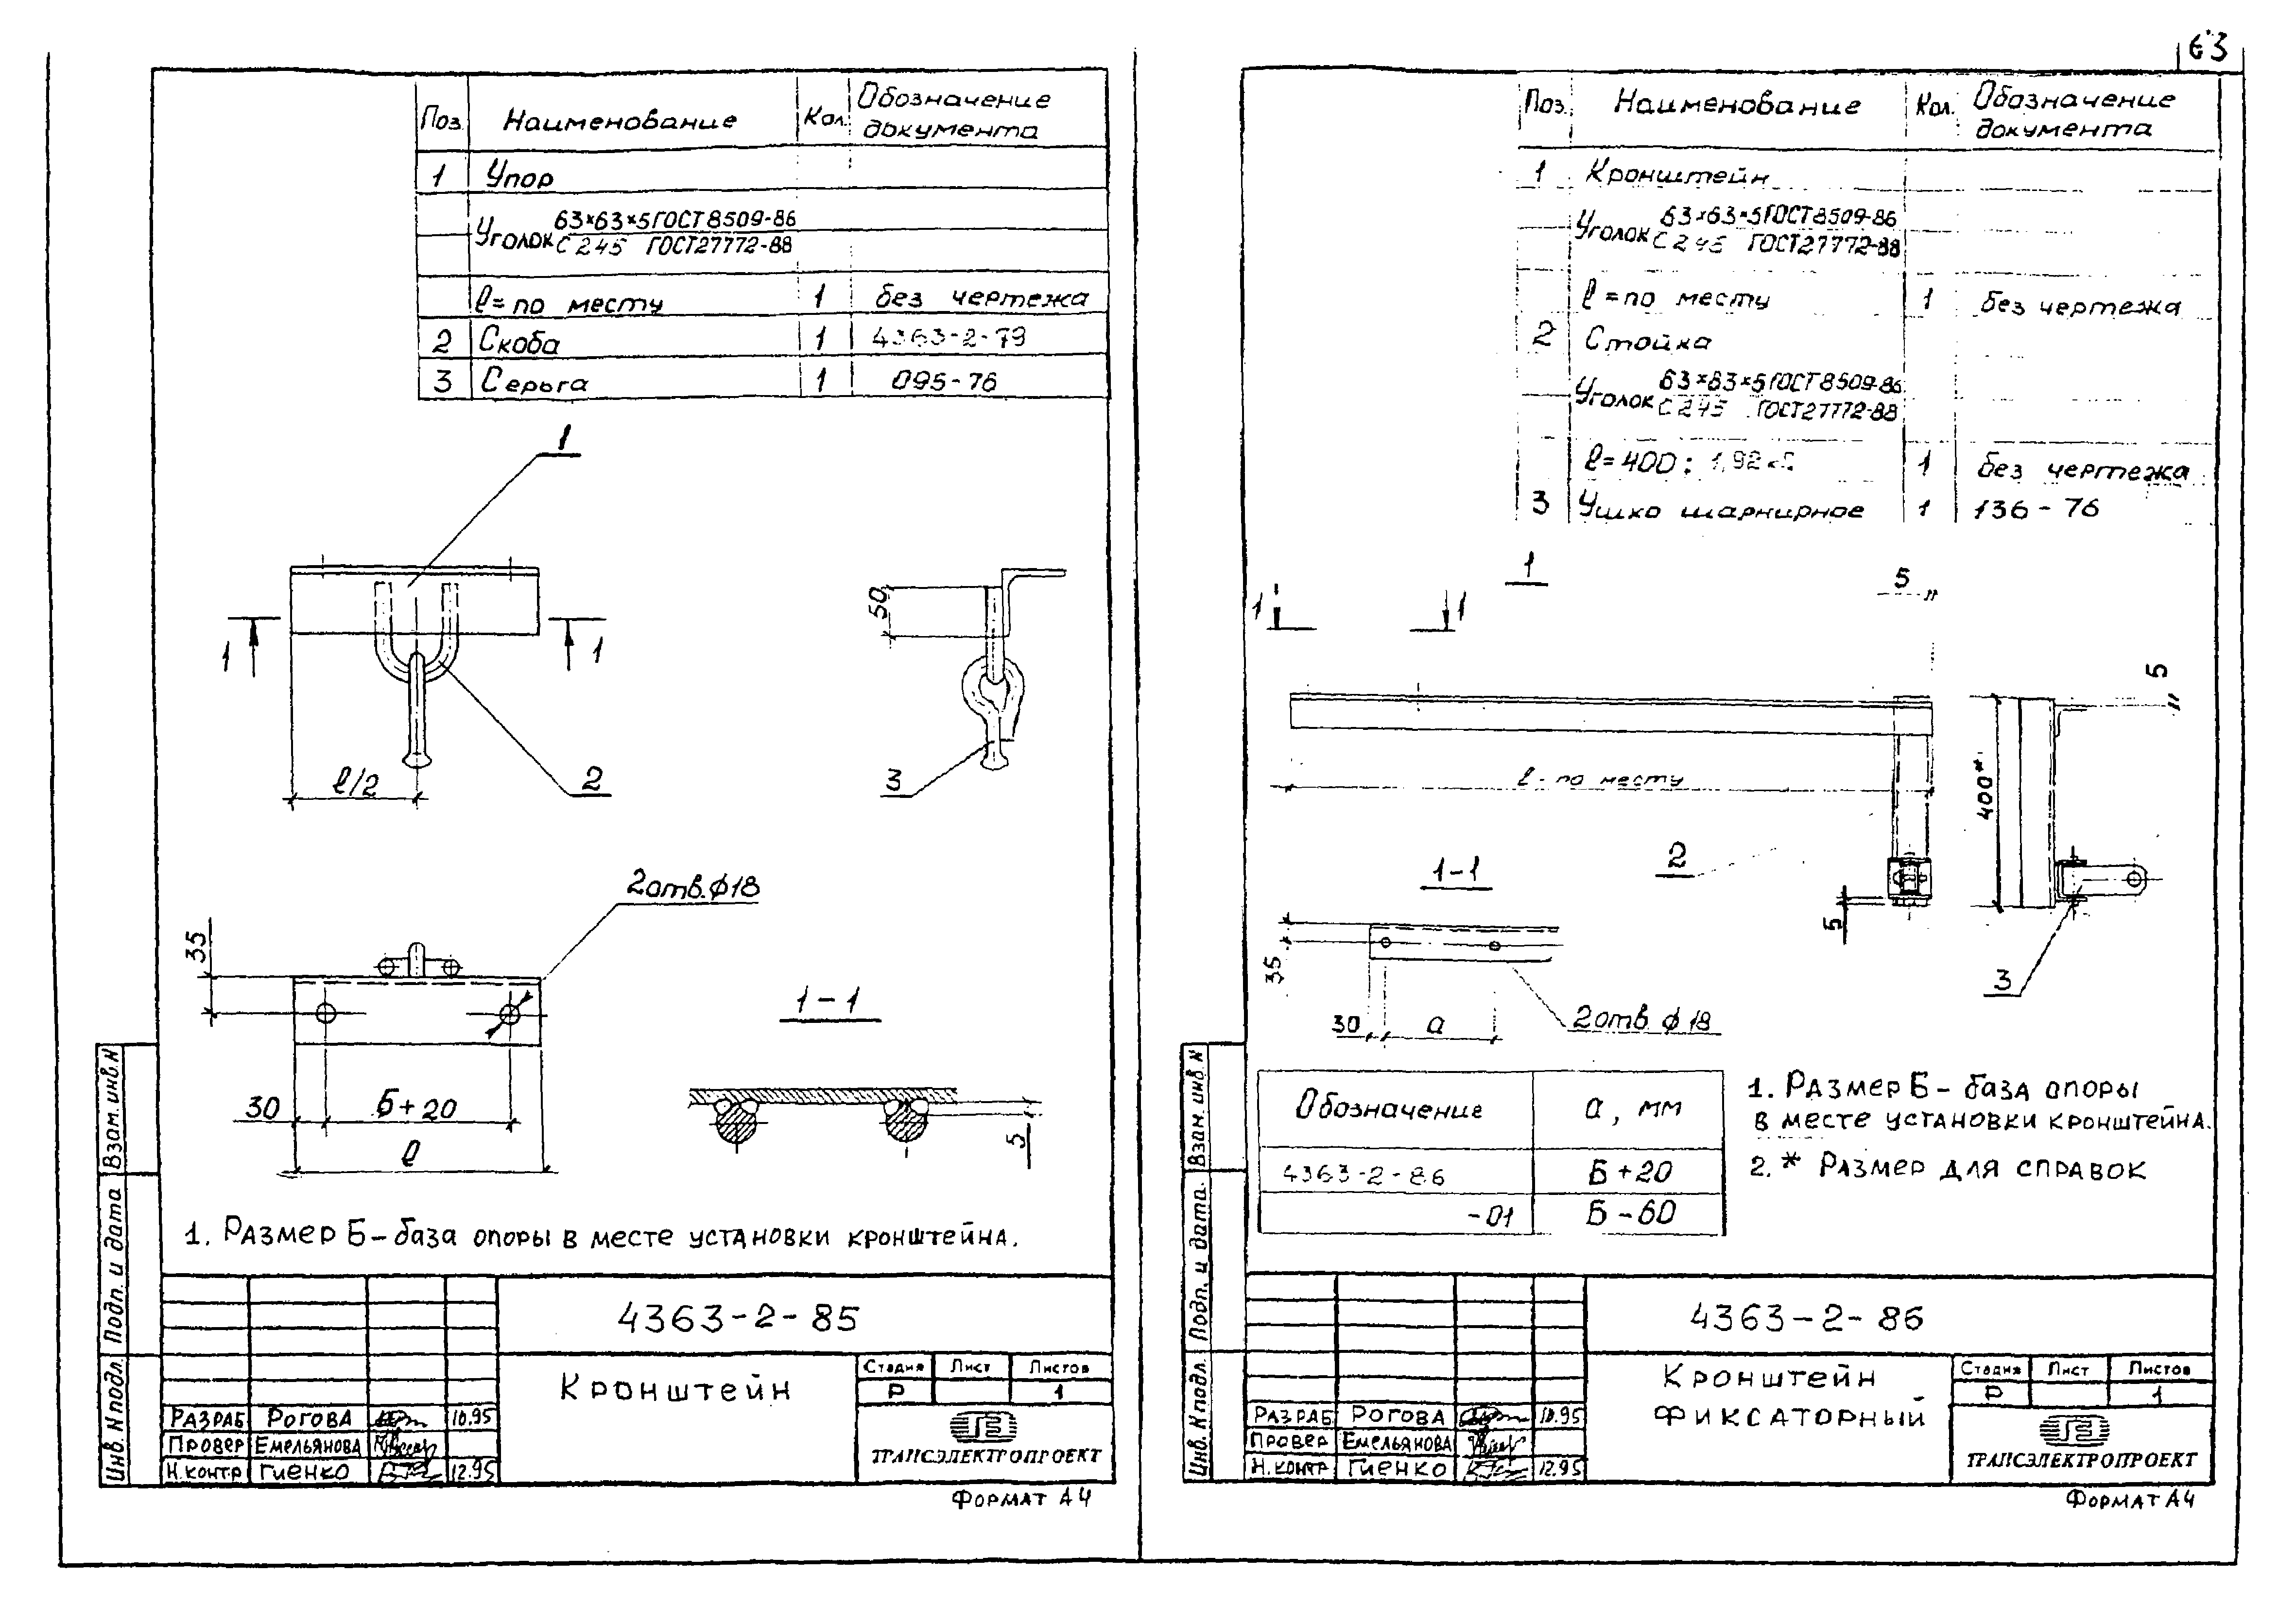 63
Поз. Наименование Кол. Обозначение документа
1 Упор
Уголок 63×63×5 ГОСТ 8509-86
С 245 ГОСТ 27772-88
ℓ= по месту 1 без чертежа
2 Скоба 1 4363-2-79
3 Серьга 1 095-76
1
50
1 1
ℓ/2
2
3
2 отв. ϕ18
35
1-1
30 Б+20
5
ℓ
1. Размер Б - база опоры в месте установки кронштейна.
4363-2-85
Кронштейн
Стадия Лист Листов
Р 1
ТРАНСЭЛЕКТРОПРОЕКТ
Разраб Рогова 10.95
Провер Емельянова
Н.контр Гиенко 12.95
Взам. инв. N
Подп. и дата
Инв. N подл.
Формат А4
Поз. Наименование Кол. Обозначение документа
1 Кронштейн
Уголок 63×63×5 ГОСТ 8509-86
С 245 ГОСТ 27772-88
ℓ = по месту 1 без чертежа
2 Стойка
Уголок 63×63×5 ГОСТ 8509-86
С 245 ГОСТ 27772-88
ℓ=400; 1,92 кг 1 без чертежа
3 Ушко шарнирное 1 136-76
1
5
1 1
5
ℓ - по месту
400*
2
1-1
5
35
3
30 а
2 отв. ϕ18
Обозначение а, мм
4363-2-86 Б+20
-01 Б-60
1. Размер Б - база опоры
в месте установки кронштейна.
2. * Размер для справок
4363-2-86
Кронштейн
фиксаторный
Стадия Лист Листов
Р 1
ТРАНСЭЛЕКТРОПРОЕКТ
Разраб Рогова 10.95
Провер Емельянова
Н.контр Гиенко 12.95
Взам. инв. N
Подп. и дата.
Инв. N подл.
Формат А4